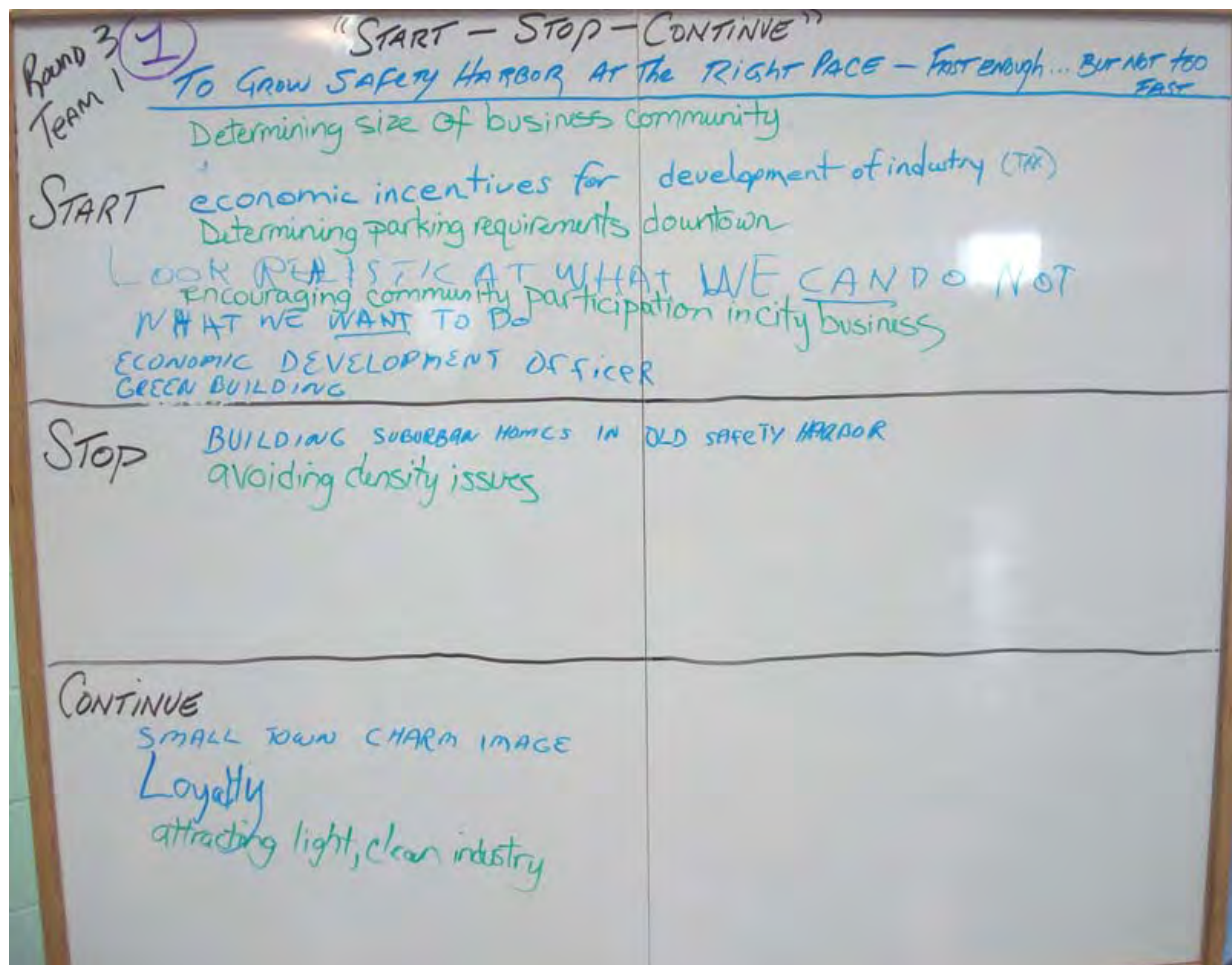 Round 3
Team 1
1
"START - STOP - CONTINUE"
TO GROW SAFETY HARBOR AT THE RIGHT PACE - FAST ENOUGH... BUT NOT TOO
FAST
Determining size of business community
START
economic incentives for development of industry (TAX)
Determining parking requirements downtown
LOOK REALISTIC AT WHAT WE CAN DO NOT
encouraging community participation in city business
WHAT WE WANT TO DO
ECONOMIC DEVELOPMENT OFFICER
GREEN BUILDING
STOP
BUILDING SUBURBAN HOMES IN OLD SAFETY HARBOR
avoiding density issues
CONTINUE
SMALL TOWN CHARM IMAGE
Loyalty
attracting light, clean industry